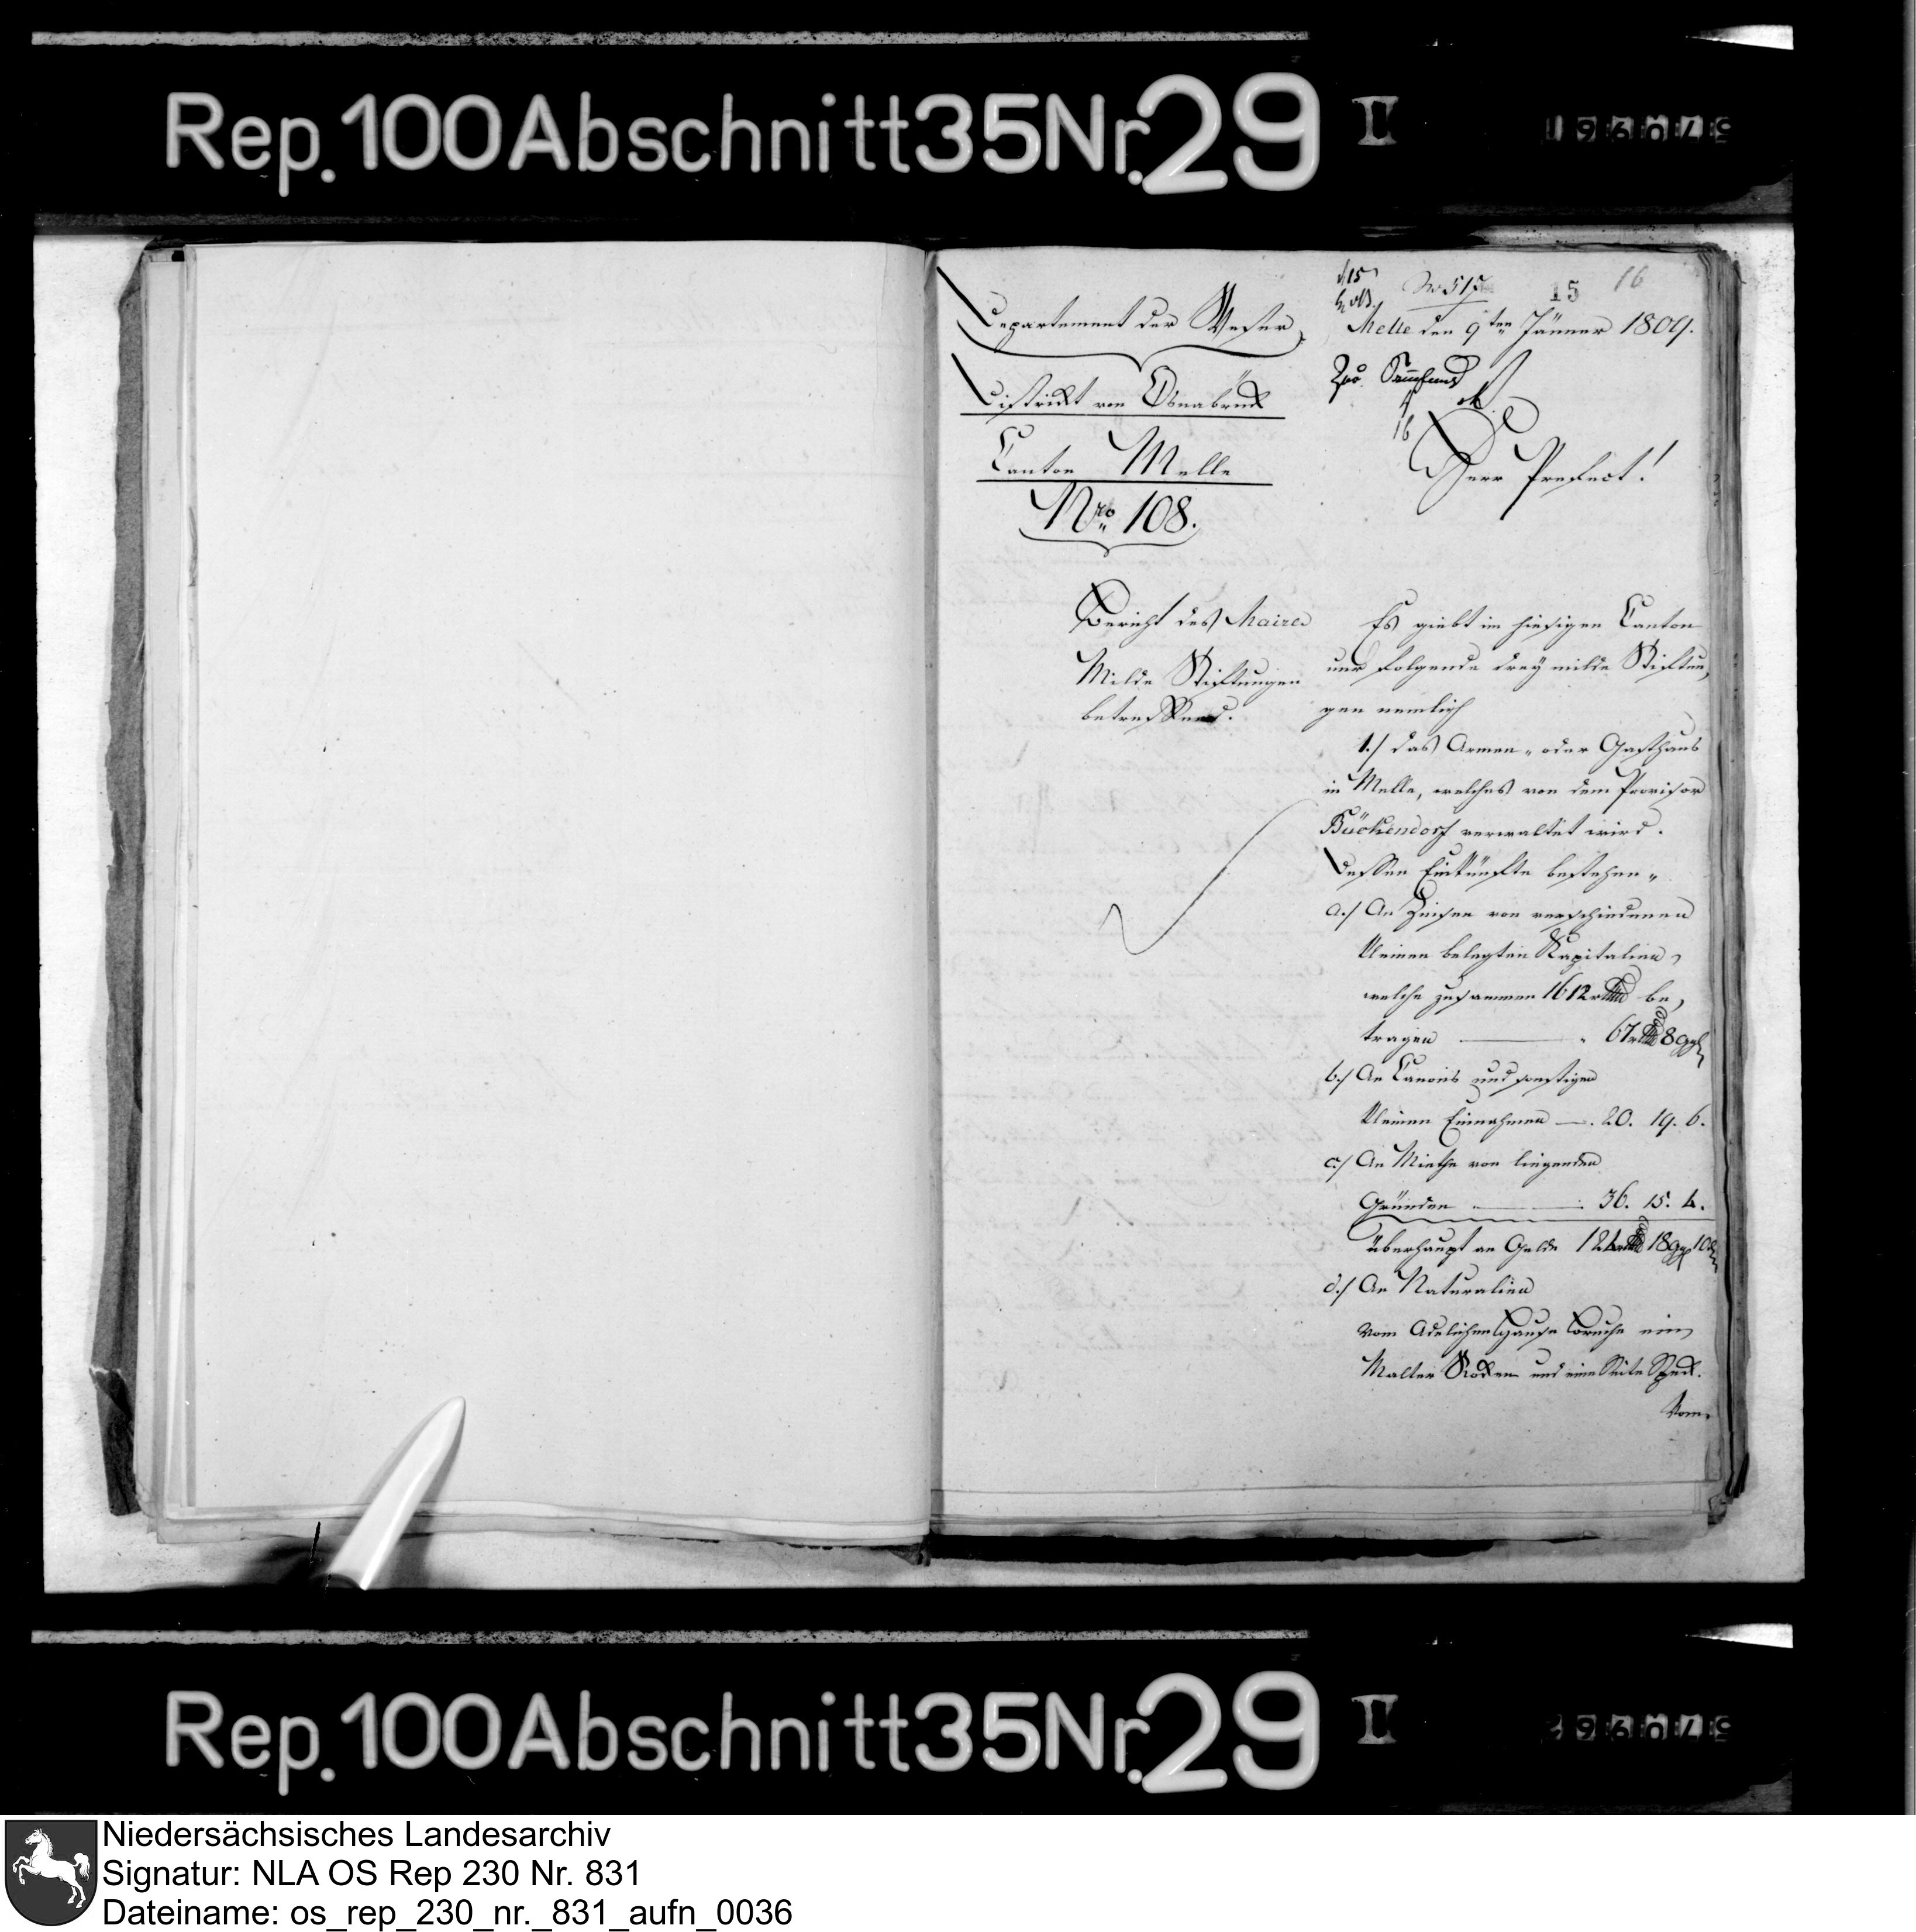 Rep. 100 Abschnitt 35 Nr. 29 I
Departement der Weser,
District von Osnabrück
Canton Melle
Nro 108.
Bericht des Maires
Milde Stiftungen
betreffend.
No 515
15
16
Melle den 9ten Jänner 1809.
16
Herr Prefect!
Es giebt im hiesigen Canton
nur folgende drey milde Stiftun,
gen nemlich
1./ das Armen- oder Gasthaus
in Melle, welches von dem Provisor
Bückendorf verwaltet wird.
Dessen Einkünfte bestehen,
a./ An Zinsen von verschiedenen
kleinen belegten Kapitalien,
welche zusammen 1612 rthlr be,
tragen — 67 rthlr 8 ggl
b./ An Canons und sonstigen
kleinen Einnahmen — 20. 19. 6.
c./ An Miethe von liegenden
Gründen — 36. 15. 4.
überhaupt an Gelde 124 rthlr 18 ggl 10 d
d./ An Naturalien
Vom Adelichen Hause Bruche ein
Malter Rocken und eine Seite Speck.
Vom
Rep. 100 Abschnitt 35 Nr. 29 I
Niedersächsisches Landesarchiv
Signatur: NLA OS Rep 230 Nr. 831
Dateiname: os_rep_230_nr._831_aufn_0036